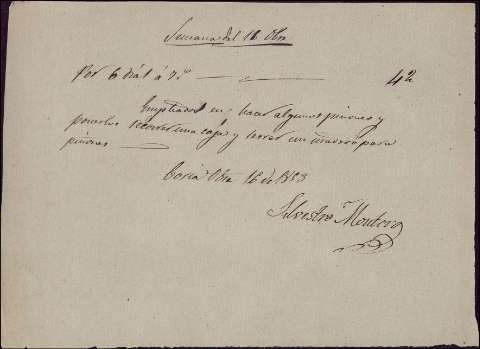 Semana del 16 Obre
Por 6 dias á 7 rs 42
Empleados en hacer algunos piñones y
ponerlos recorrer una caja y serrar un madero para
piñones
Coria Obre 16 de 1883
Silvestre Montero